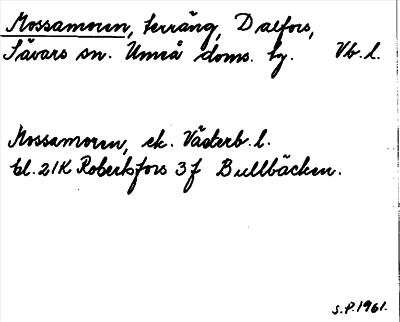 Mossamoren, terräng, Dalfors,
Sävars sn. Umeå doms. hg. Vb. l.
Mossamoren, ek. Västerb. l.
bl. 21K Robertsfors 3f Bullbäcken.
S.P. 1961.